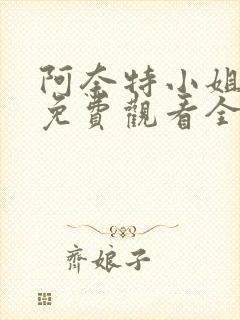 阿奈特小姐
免費觀看全
齊娘子